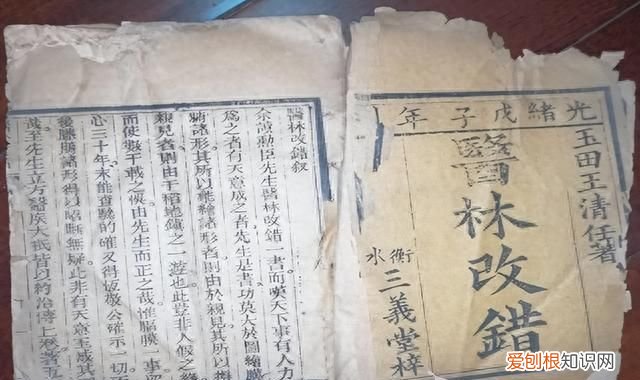 光緒戊子年
玉田王清任著
醫林改錯
衡水
三義堂梓
醫林改錯叙
余讀勳臣先生醫林改錯一書而嘆天下事有人力
爲之者有天意成之者先生是書功莫大於圖繪臟
腑諸形其所以能繪諸形者則由於親見其所以得
親見者則由于稻地鎮之一遊也此豈非人假之緣
而使數千載之悞由先生而正之哉惟膈膜一事留
心三十年未能查驗的確又得恆敬公確示一切
後臟腑諸形得以昭晰無疑此非有天意玉成其
哉至先生立方醫疾大抵皆以約治博上卷著五
爱刨根知识网